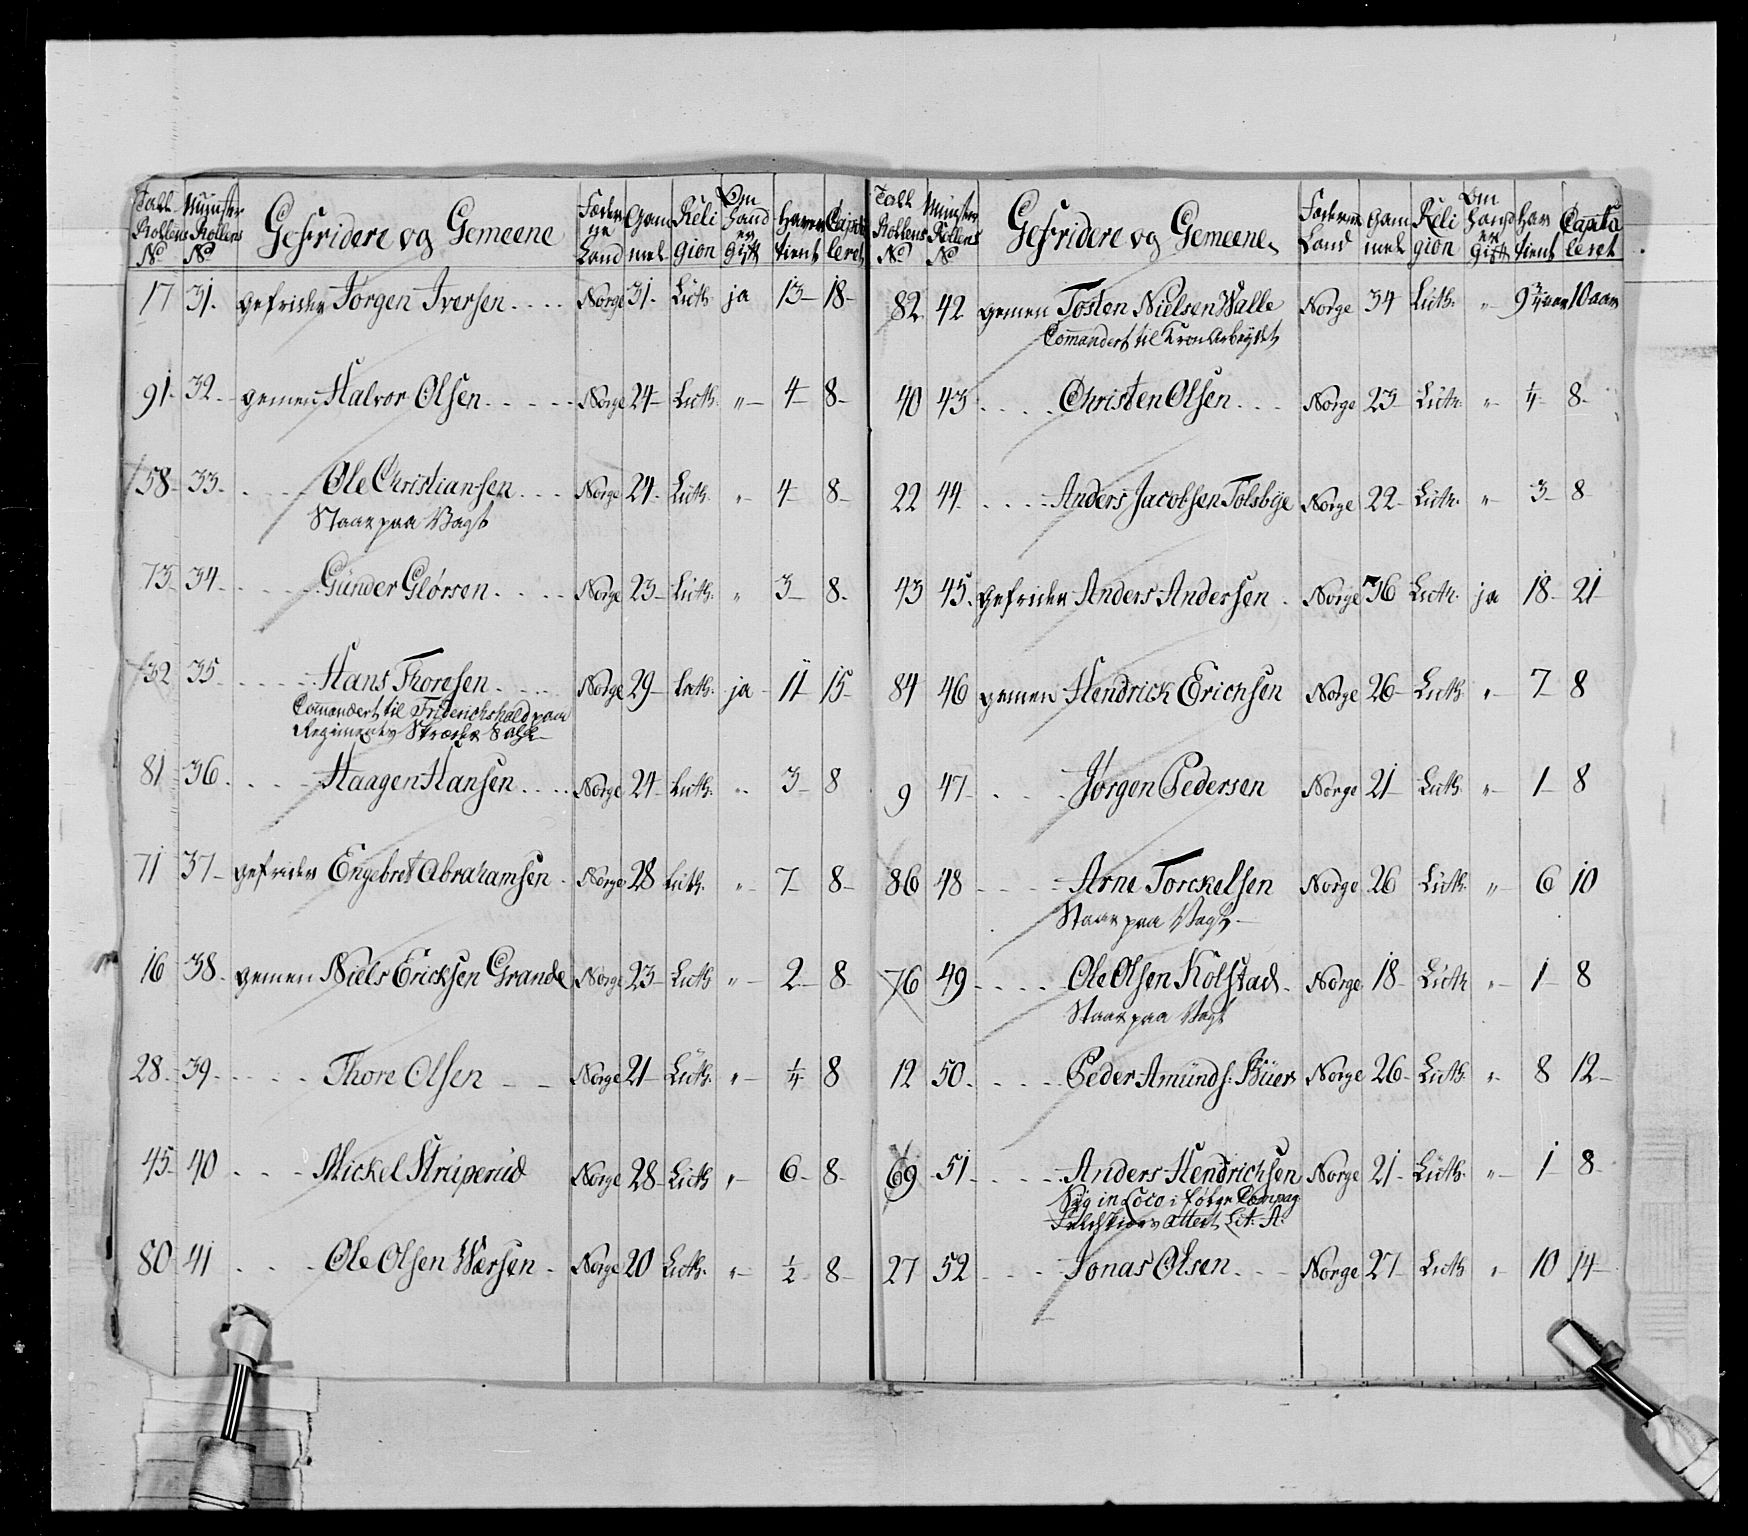 Tall Rollens No | Mynster Rollens No | Gefridere og Gemeene | Fædern ne Land | Gam mel | Reli gion | Om Hand er Gift | Haver tient | Capitu leret
17 31. gefrider Jørgen Iversen.... Norge 31. Luth ja 13- 18-
91. 32. gemen Halvor Olsen..... Norge 24- Luth. " 4- 8-
58- 33. .... Ole Christiansen... Norge 24- Luth. " 4- 8-
Staar paa Vagt
73- 34- ..... Günder Glørsen.... Norge 23- Luth. " 3- 8.
32 35 ..... Hans Thoresen..... Norge 29- Luth. ja 11 15-
Comandert til Friderichshald paa
Regimentz
81 36. .... Haagen Hansen.... Norge 24- Luth. " 3- 8
71 37- gefrider Engebret Abrahamsen. Norge 28 Luth. " 7- 8-
16 38. gemen Niels Ericksen Grande Norge 23- Luth " 2- 8-
28. 39. .... Thore Olsen - - Norge 21- Luth. " 1/4 8
45- 40 ... Mickel Struperud Norge 28- Luth " 6- 8-
80 41 ... Ole Olsen Wersen. Norge 20 Luth. " 1/2 8-
Tall Rollens No | Mynster Rollens No | Gefridere og Gemeene | Federne Land | Gam mel | Reli gion | Om Hand er Gift | Har tient | Capitu leret
82 42 gemen Tosten Nielsen Walle Norge 34 Luth. " 9 3/4 aar 10 aar
Comandert til Kron Arbeydet
40 43 .... Christen Olsen... Norge 23- Luth. " 4- 8-
22 44 .... Anders Jacobsen Tolsbye Norge 22- Luth. " 3- 8
43 45. gefrider Anders Andersen. Norge 36 Luth. ja 18- 21-
84 46 gemen Hendrick Erichsen Norge 26- Luth. " 7- 8
9 47- .... Jørgen Pedersen Norge 21- Luth. " 1- 8
86 48 .... Arne Torckelsen Norge 26 Luth. " 6 10
Staar paa Vagt
76 49 .... Ole Olsen Kolstad. Norge 18- Luth " 1- 8
Staar paa Vagt
12 50. .... Peder Amünds: Büer Norge 26- Luth. " 8 12-
69 51 .... Anders Hendrichsen Norge 21- Luth. " 1 8-
Syg in Loco i følge Compag
Feldskiers Attest Lit. A.
27 52 .... Jonas Olsen... Norge 27- Luth " 10 14-